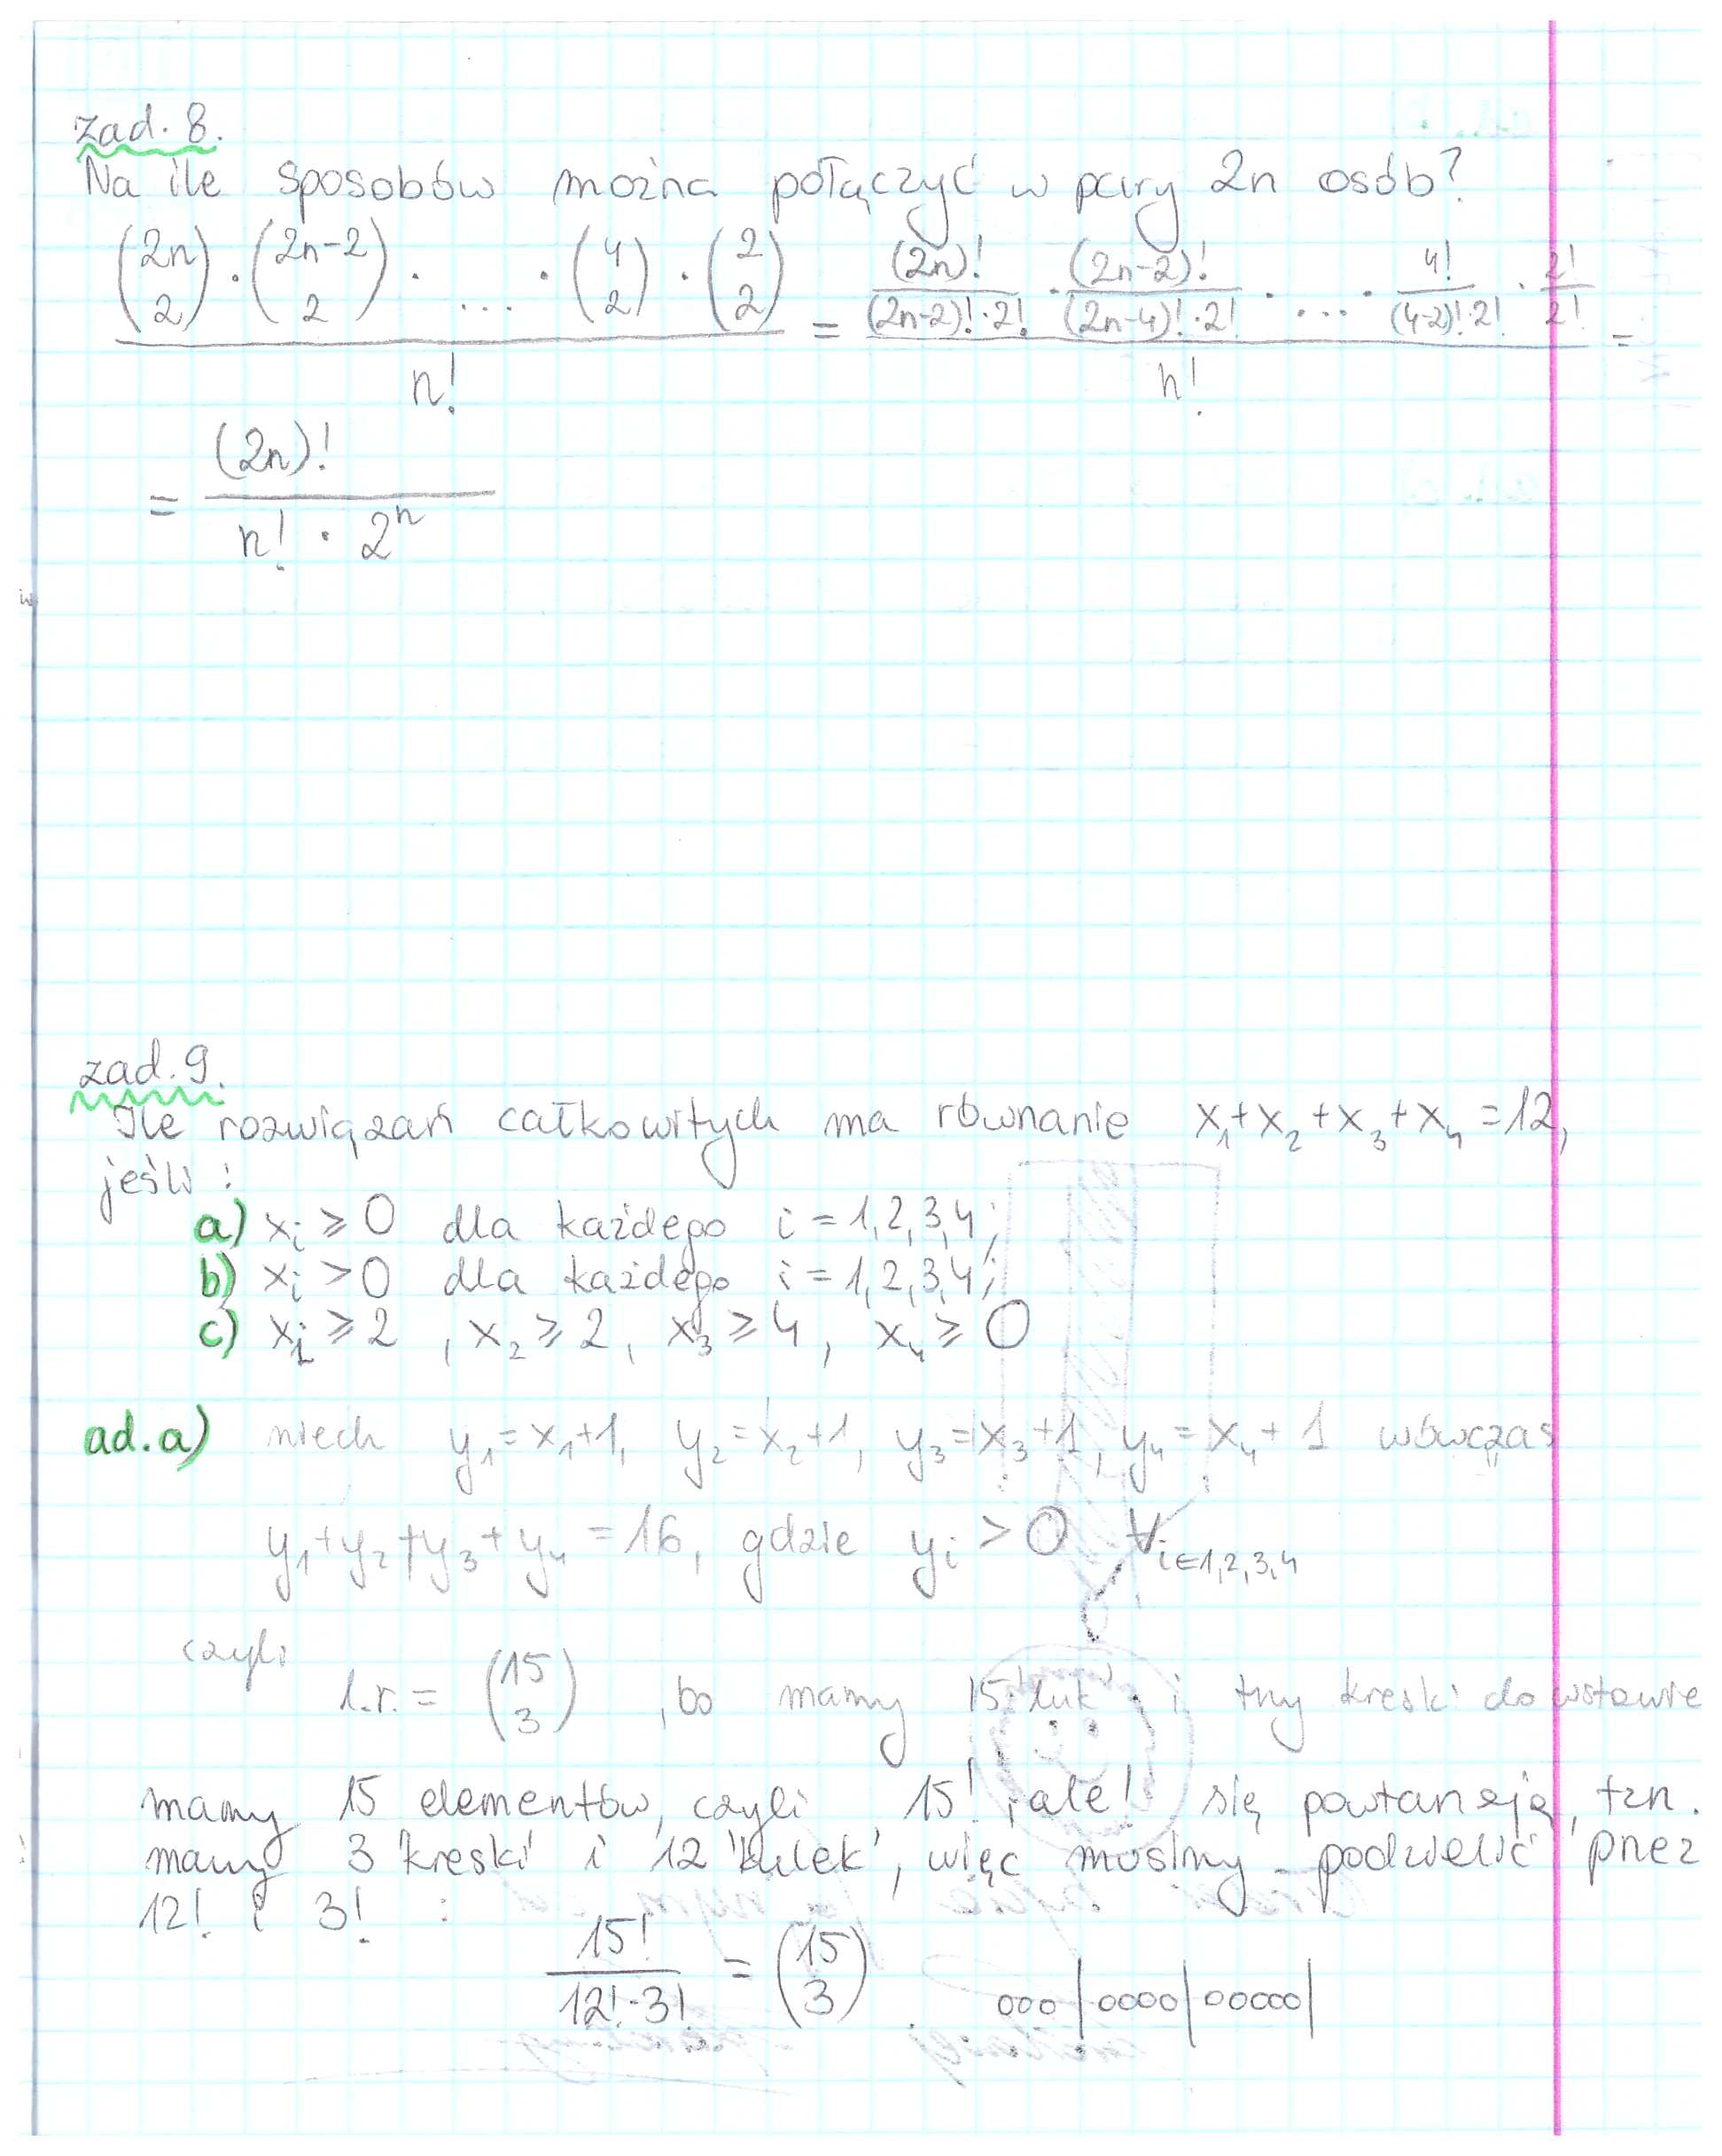 zad. 8.
Na ile sposobów można połączyć w pary 2n osób?
\frac{\binom{2n}{2} \cdot \binom{2n-2}{2} \cdot ... \cdot \binom{4}{2} \cdot \binom{2}{2}}{n!} = \frac{\frac{(2n)!}{(2n-2)! \cdot 2!} \cdot \frac{(2n-2)!}{(2n-4)! \cdot 2!} \cdot ... \cdot \frac{4!}{(4-2)! \cdot 2!} \cdot \frac{2!}{2!}}{n!} =
= \frac{(2n)!}{n! \cdot 2^n}
zad. 9.
Ile rozwiązań całkowitych ma równanie x₁+x₂+x₃+x₄=12,
jeśli:
a) xᵢ ⩾ 0 dla każdego i = 1,2,3,4;
b) xᵢ > 0 dla każdego i = 1,2,3,4;
c) x₁ ⩾ 2, x₂ ⩾ 2, x₃ ⩾ 4, x₄ ⩾ 0
ad. a) niech y₁=x₁+1, y₂=x₂+1, y₃=x₃+1, y₄=x₄+1 wówczas
y₁+y₂+y₃+y₄ = 16, gdzie yᵢ > 0 ∀ i∈1,2,3,4
czyli
l.r. = \binom{15}{3}, bo mamy 15 luk i trzy kreski do wstawie
mamy 15 elementów, czyli 15!, ale! się powtarzają, tzn.
mamy 3 'kreski' i 12 'kulek', więc musimy podzielić przez
12! i 3! :
\frac{15!}{12! \cdot 3!} = \binom{15}{3}. ooo|oooo|ooooo|